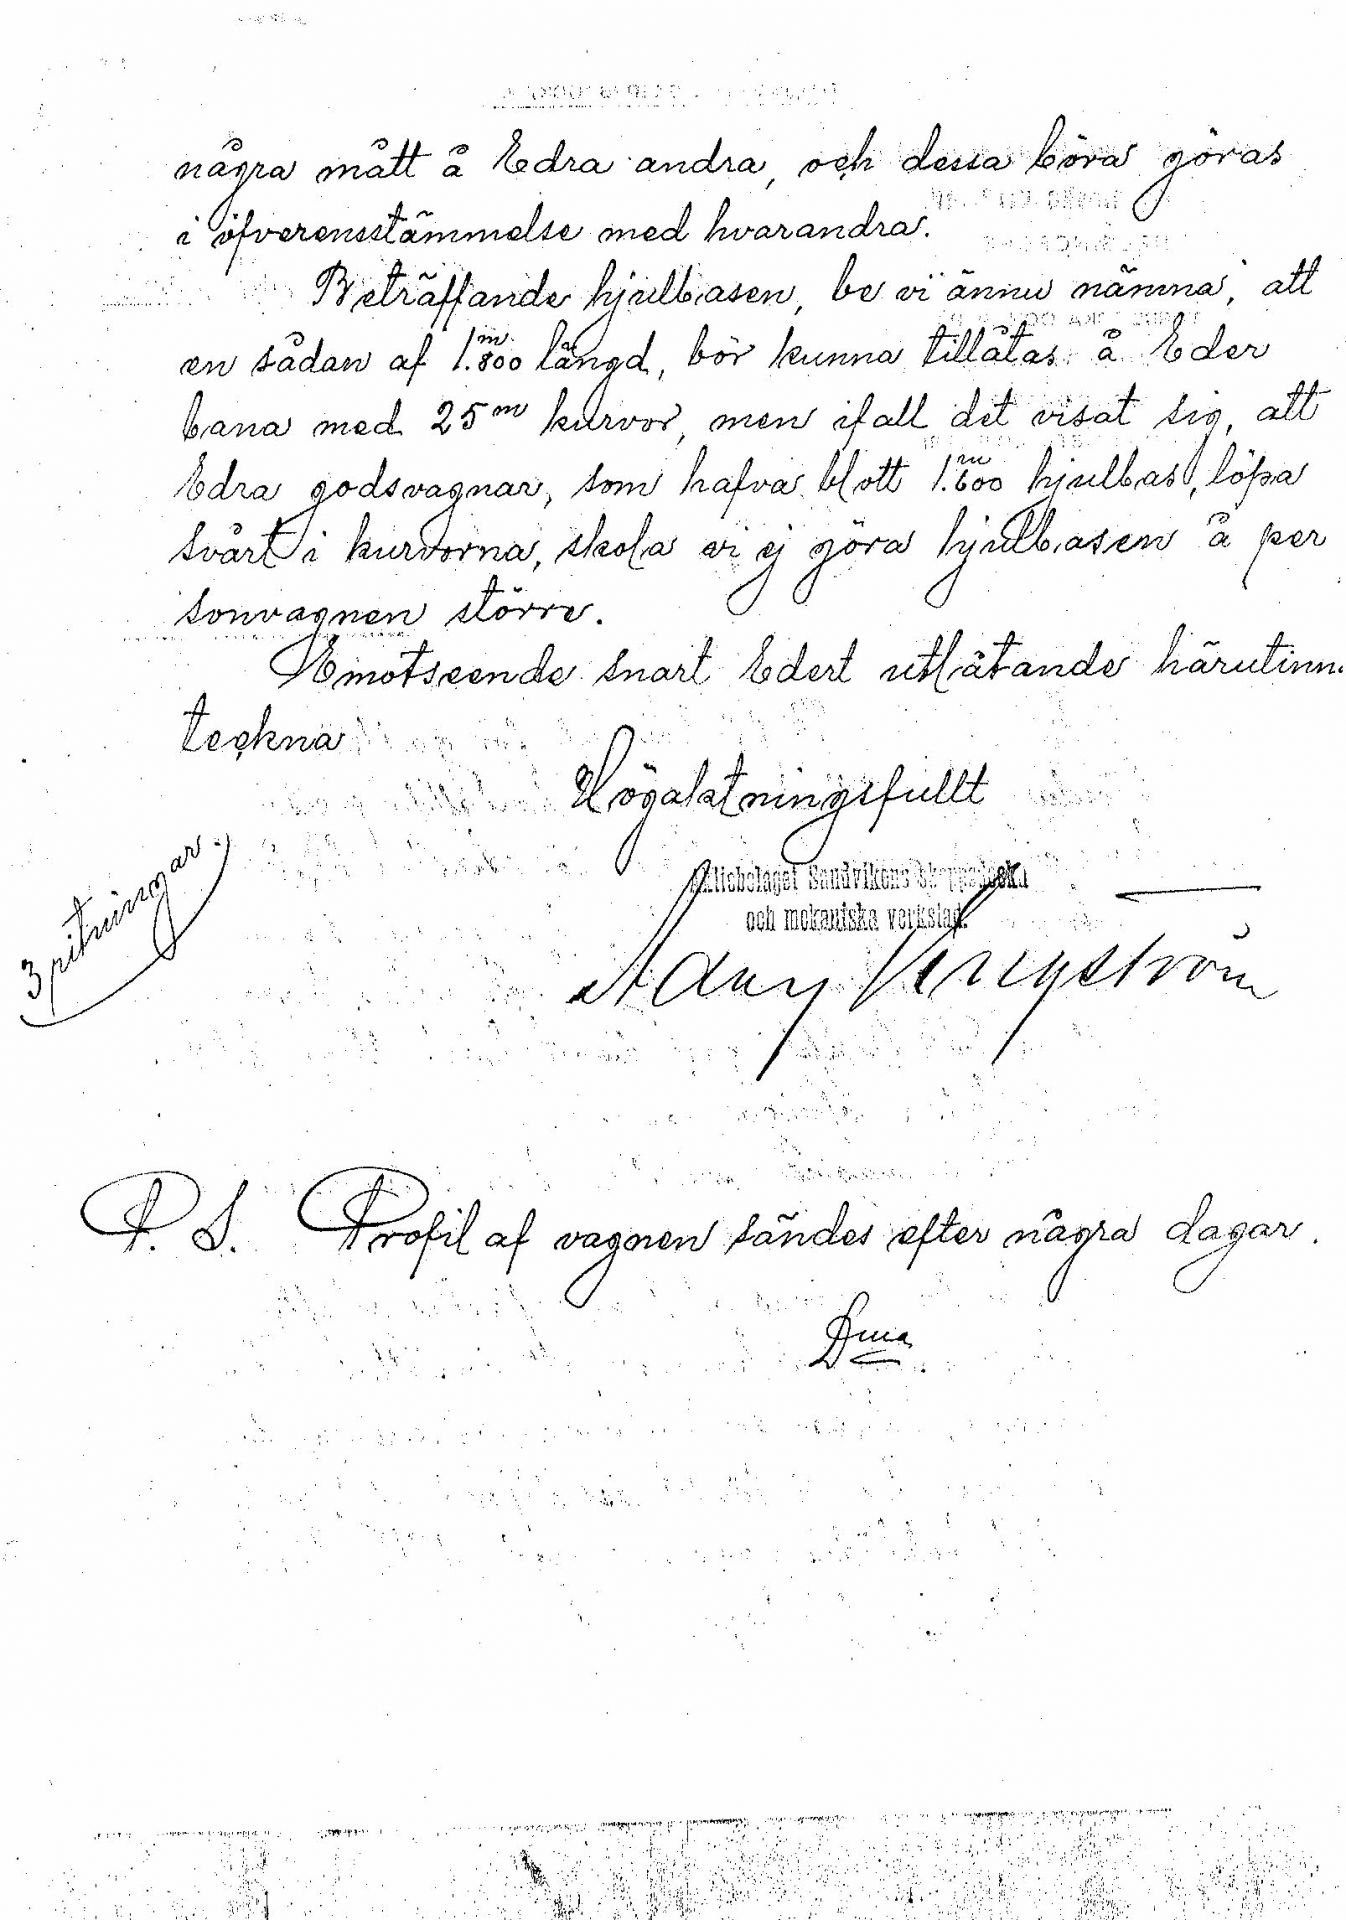 några mått å Edra andra, och dessa böra göras
i öfverensstämmelse med hvarandra.
Beträffande hjulbasen, be vi ännu nämna, att
en sådan af 1.800 m längd, bör kunna tillåtas å Eder
bana med 25 m kurvor, men ifall det visat sig, att
Edra godsvagnar, som hafva blott 1.600 m hjulbas, löpa
svårt i kurvorna, skola vi ej göra hjulbasen å per
sonvagnen större.
Emotseende snart Edert utlåtande härutinn.
teckna
Högaktningsfullt
3 ritningar.
Aktiebolaget Sandvikens Skeppsdocka
och mekaniska verkstad.
P. S. Profil af vagnen sändes efter några dagar.
D.ma